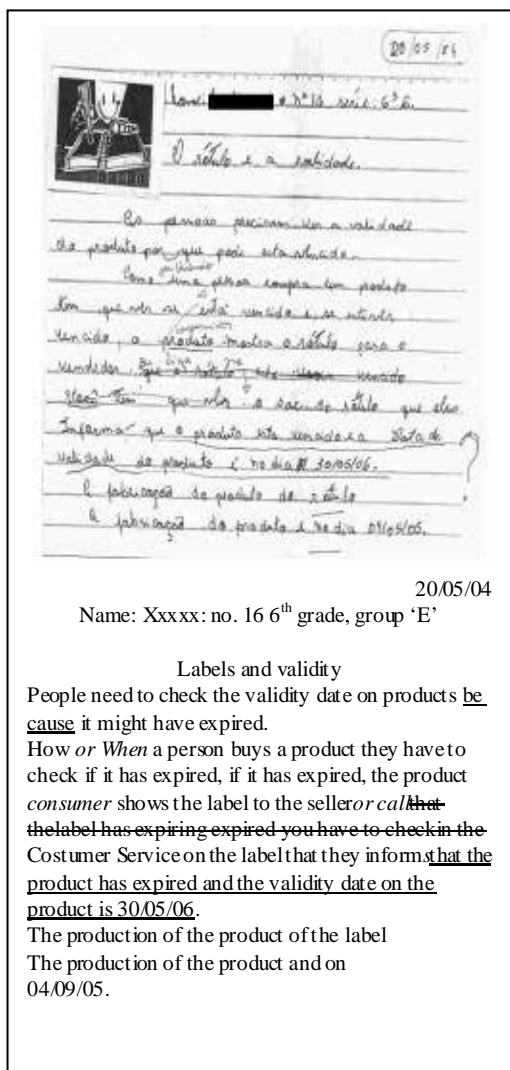 20/05/04
nº 16 série: 6ª E.
O rótulo e a validade.
As pessoas precisam ver a validade
do produto por que pode esta vencido.
Como uma pessoa compra um produto
tem que ver se está vencido e se estiver
vencido, o produto mostra o rótulo para o
vendedor, que o rótulo vencido
Você tem que ver o sac do rótulo que eles
Informa que o produto esta vencido e a data de
validade do produto é no dia 30/05/06. ?
A fabricação do produto do rótulo
A fabricação do produto é no dia 04/09/05.
20/05/04
Name: Xxxxx: no. 16 6th grade, group ‘E’
Labels and validity
People need to check the validity date on products be
cause it might have expired.
How or When a person buys a product they have to
check if it has expired, if it has expired, the product
consumer shows the label to the seller or call that
the label has expiring expired you have to check in the
Costumer Service on the label that they informs that the
product has expired and the validity date on the
product is 30/05/06.
The production of the product of the label
The production of the product and on
04/09/05.